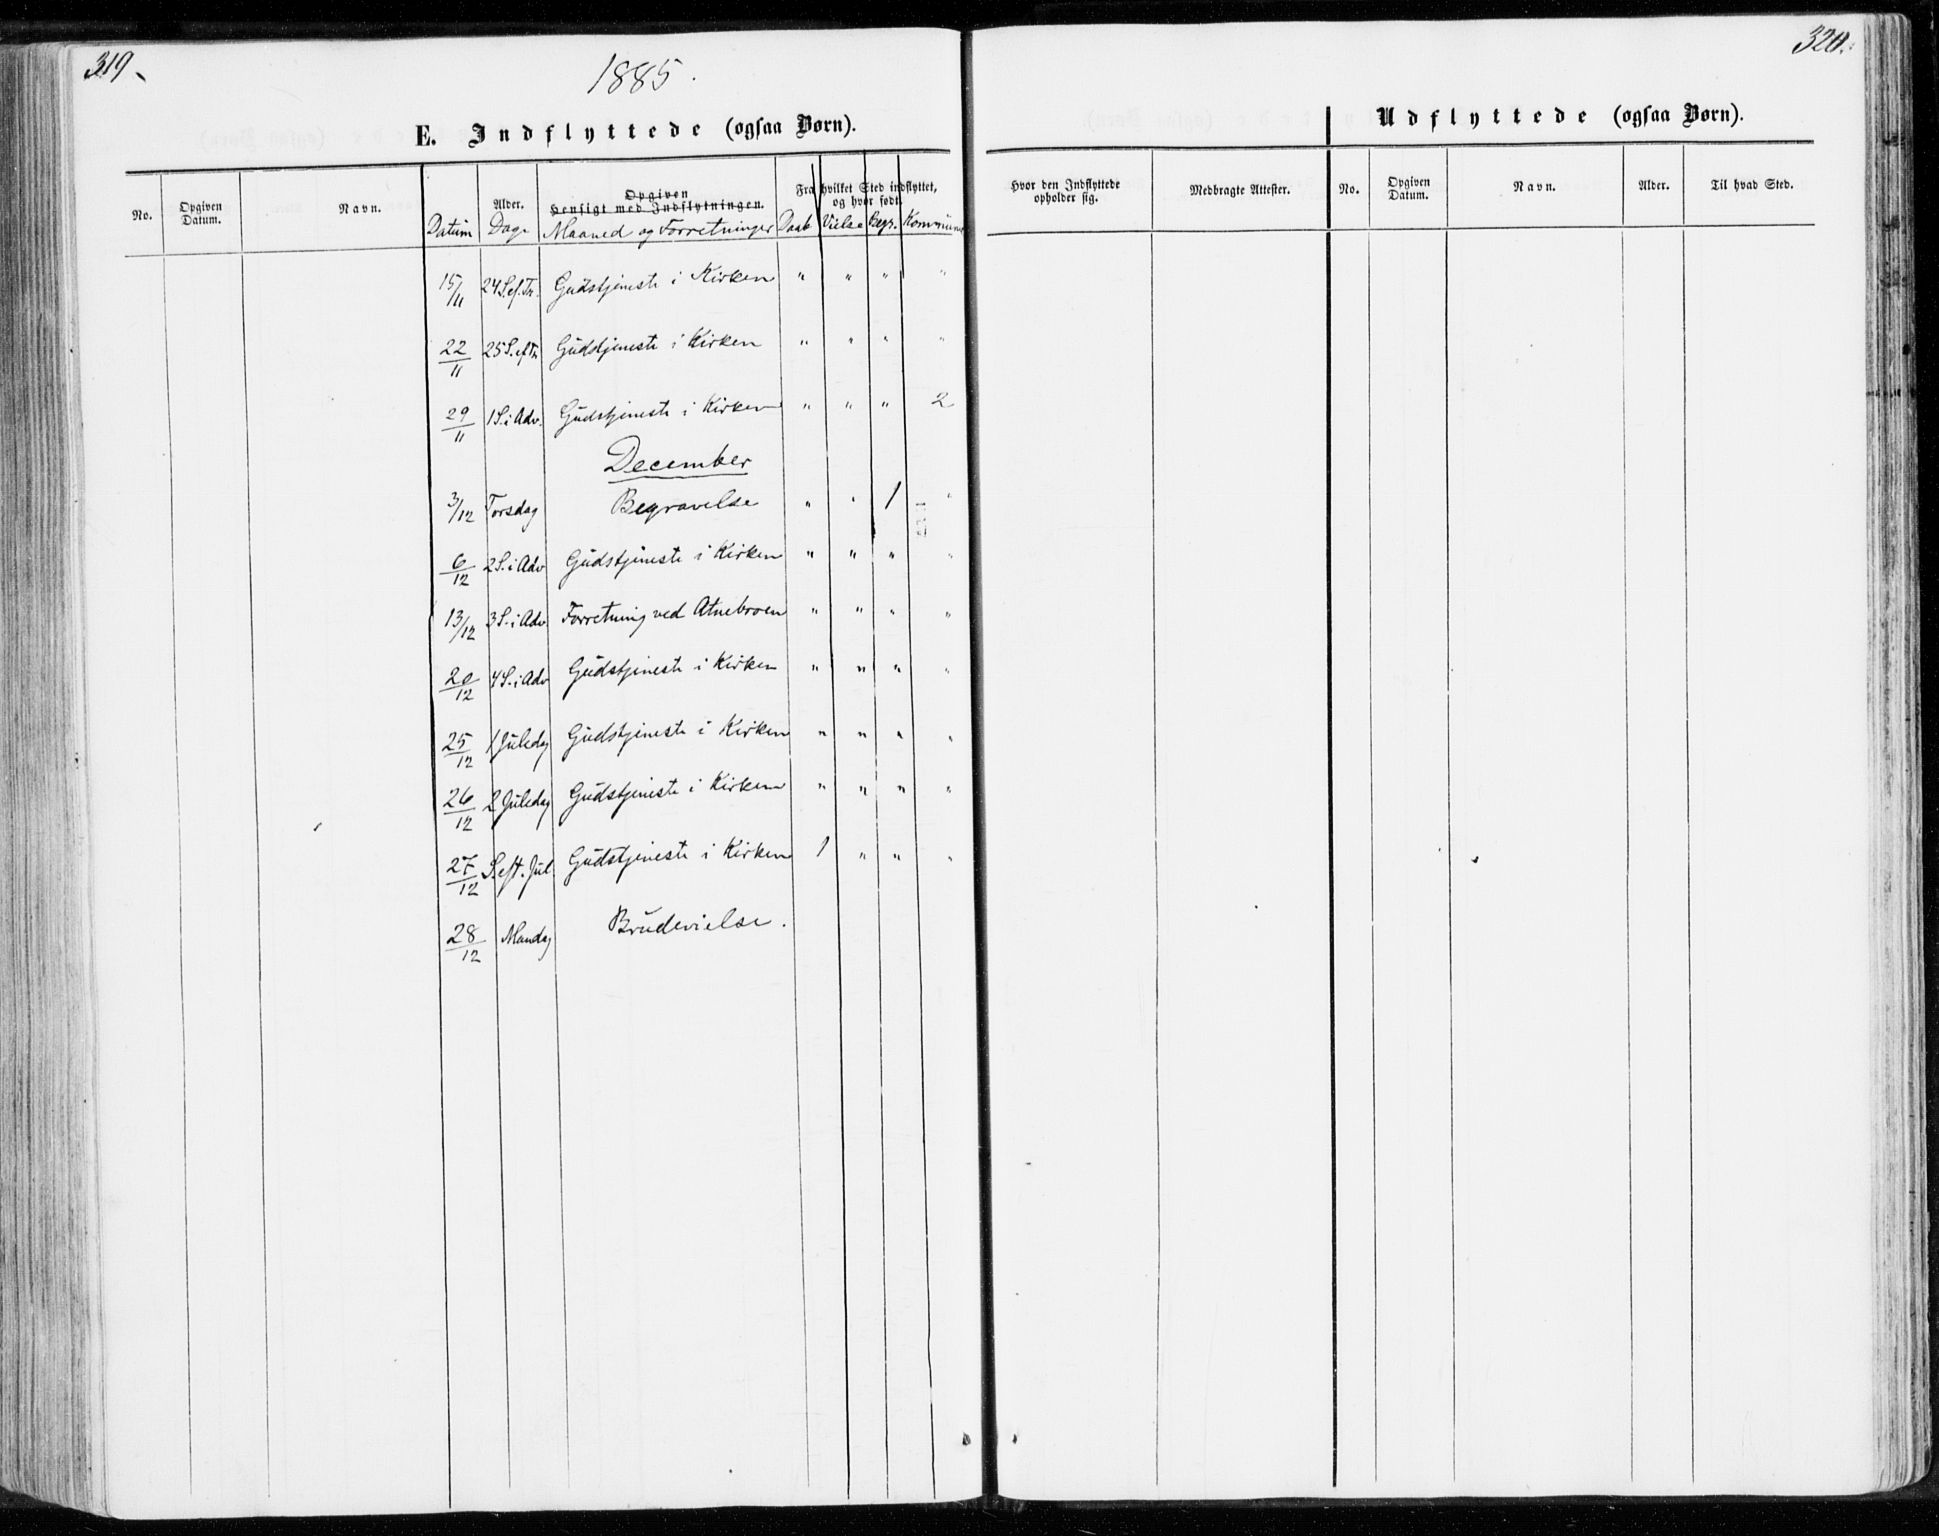 319.
1885.
E. Indflyttede (ogsaa Børn).
No. Opgiven Datum. Navn. Alder. Opgiven Hensigt med Indflytningen. Fra hvilket Sted indflyttet, og hvor født.
Datum Dage Maaned og Forretninger Daab Vielse Begr. Kommun
15/11 24 S. ef. Tr. Gudstjeneste i Kirken " " " "
22/11 25 S. ef Tr. Gudstjeneste i Kirken " " " "
29/11 1 S. i Adv. Gudstjeneste i Kirken " " " 2
December
3/12 Torsdag Begravelse " " 1 "
6/12 2 S. i Adv Gudstjeneste i Kirken " " " "
13/12 3 S. i Adv. Forretning ved Atnebroen " " " "
20/12 4 S. i Adv Gudstjeneste i Kirken " " " "
25/12 1 Juledag Gudstjeneste i Kirken " " " "
26/12 2 Juledag Gudstjeneste i Kirken " " " "
27/12 S. eft. Jul. Gudstjeneste i Kirken 1 " " "
28/12 Mandag Brudevielse.
320.
Udflyttede (ogsaa Børn).
Hvor den Indflyttede opholder sig. Medbragte Attester. No. Opgiven Datum. Navn. Alder. Til hvad Sted.